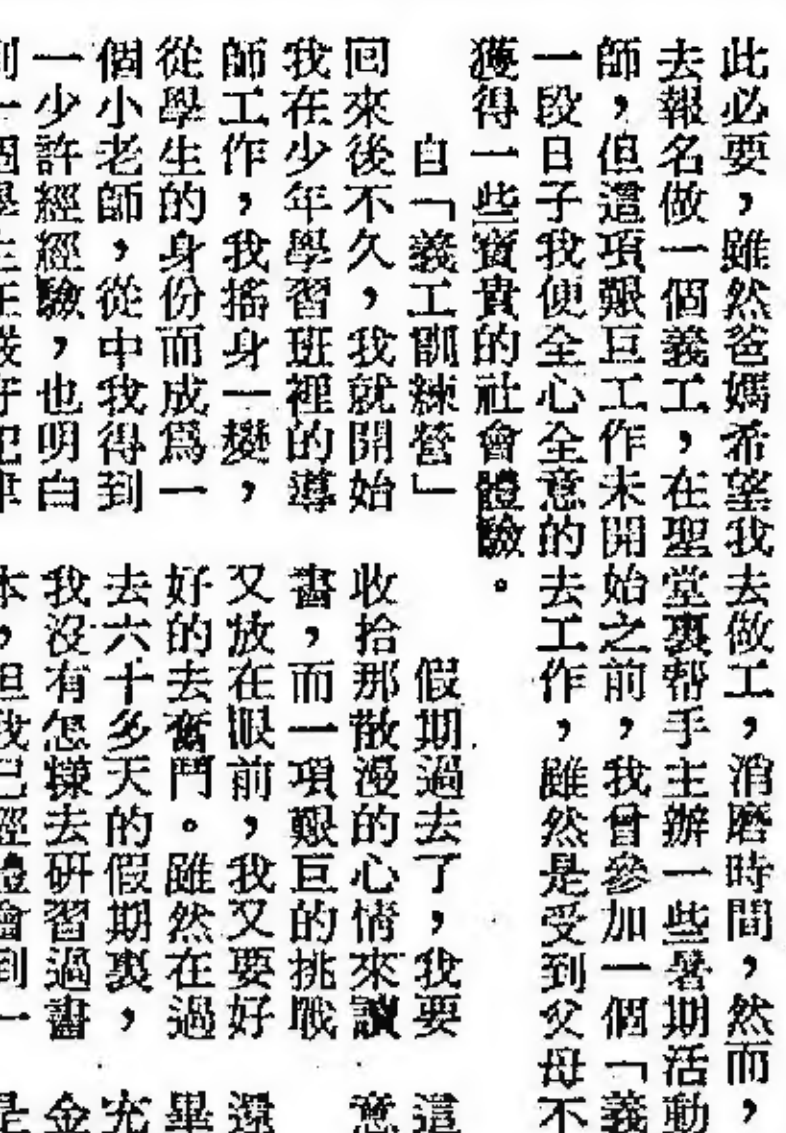 此必要，雖然爸媽希望我去做工，消磨時間，然而，
去報名做一個義工，在聖堂裏帮手主辦一些暑期活動
師，但這項艱巨工作未開始之前，我曾參加一個「義
一段日子我便全心全意的去工作，雖然是受到父母不
獲得一些寶貴的社會體驗。
自「義工訓練營」
回來後不久，我就開始
我在少年學習班裡的導
師工作，我搖身一變，
從學生的身份而成爲一
個小老師，從中我得到
一少許經經驗，也明白
到一個學生在
假期過去了，我要
收拾那散漫的心情來讀
書，而一項艱巨的挑戰
又放在眼前，我又要好
好的去奮鬥。雖然在過
去六十多天的假期裏，
我沒有怎樣去研習過書
本，但我已經體會到一
這
意
還
畢
充
金
是